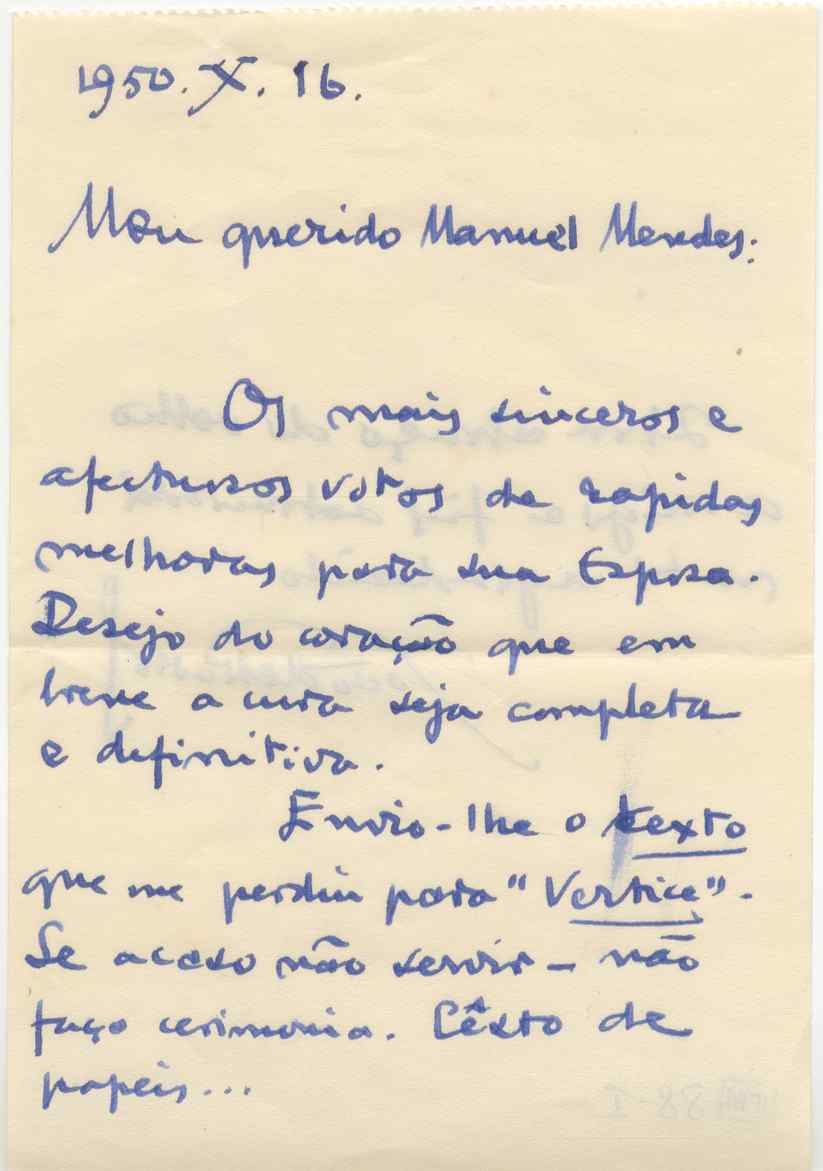 1950. X. 16.
Meu querido Manuel Mendes:
Os mais sinceros e
afectuosos votos de rapidas
melhoras para sua Esposa.
Desejo do coração que em
breve a cura seja completa
e definitiva.
Envio-lhe o texto
que me pediu para "Vertice".
Se acaso não servir – não
faço cerimonia. Cêsto de
papeis...